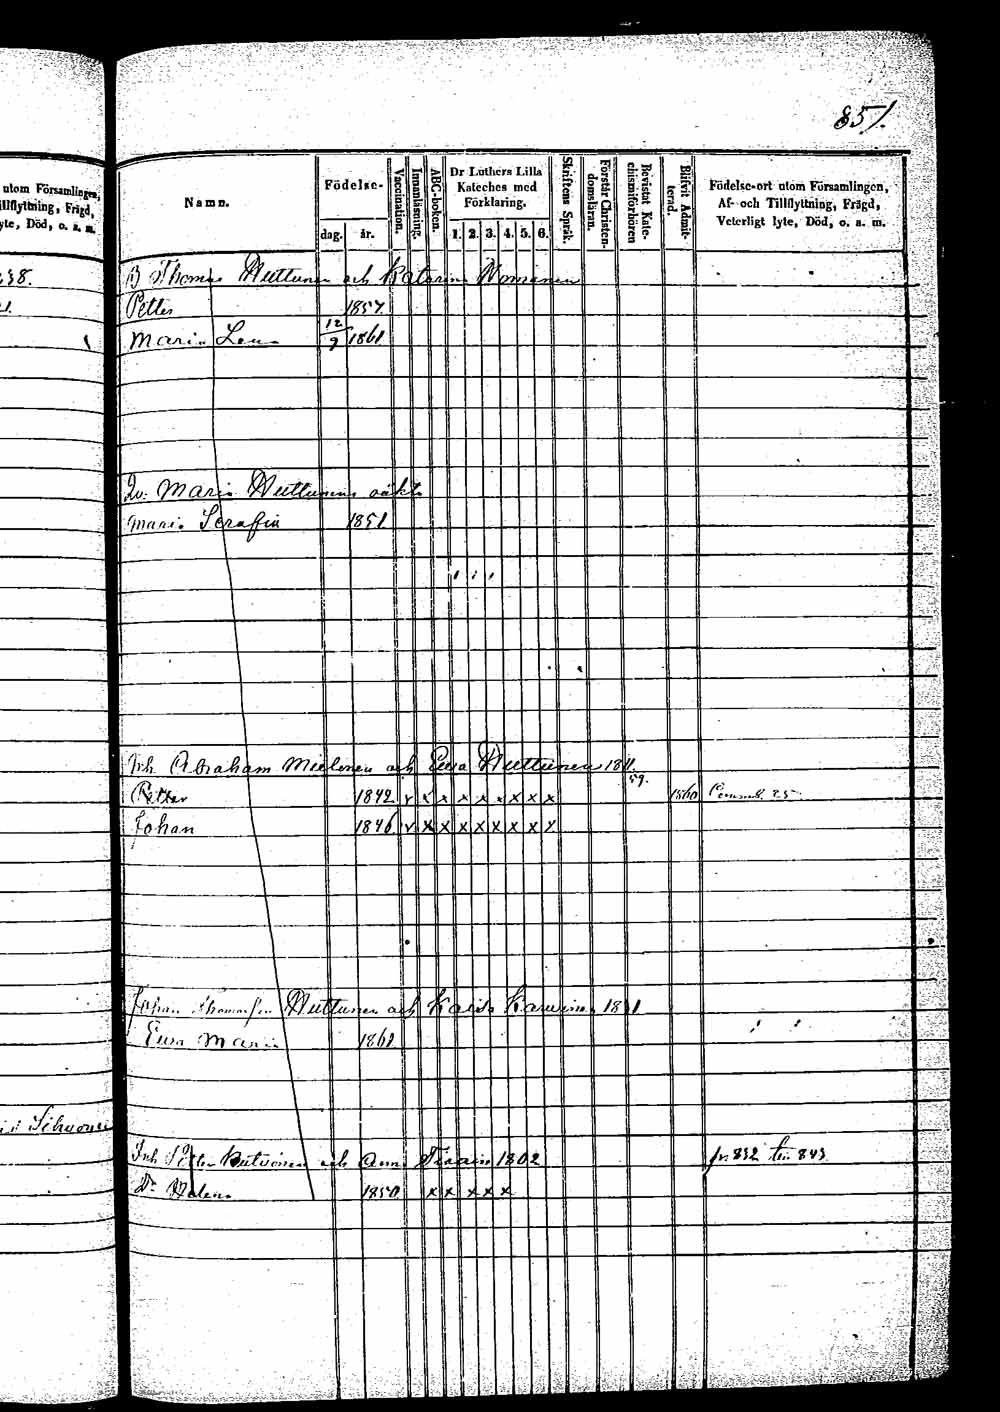 851.
utom Församlingen,
Tillflyttning, Frägd,
lyte, Död, o. s. m.
Namn.
Födelse-
dag. år.
Vaccination.
Innanläsning.
ABC-boken.
Dr Luthers Lilla
Kateches med
Förklaring.
1. 2. 3. 4. 5. 6.
Skriftens Språk.
Förstår Christen-
domsläran.
Bevistat Kate-
chismiförhören
Blifvit Admit-
terad.
Födelse-ort utom Församlingen,
Af- och Tillflyttning, Frägd,
Veterligt lyte, Död, o. s. m.
38.
B Thomas Huttunen och Katarina
Petter 1857.
Maria Lena 12/9 1861.
Maria Huttunens oäkta
Maria Serafia 1851
Inh. Abraham Mielonen och Ewa Huttunen 1811.
59.
Petter 1842 v x x x x x x x x 1860
Johan 1846 v x x x x x x x x
Johan Thomasson Huttunen och Kaisa
Ewa Maria 1861
Sihvonen
Inh Petter och Anna 1802 fr. 832 till 843
Dr Helena 1850 x x x x x